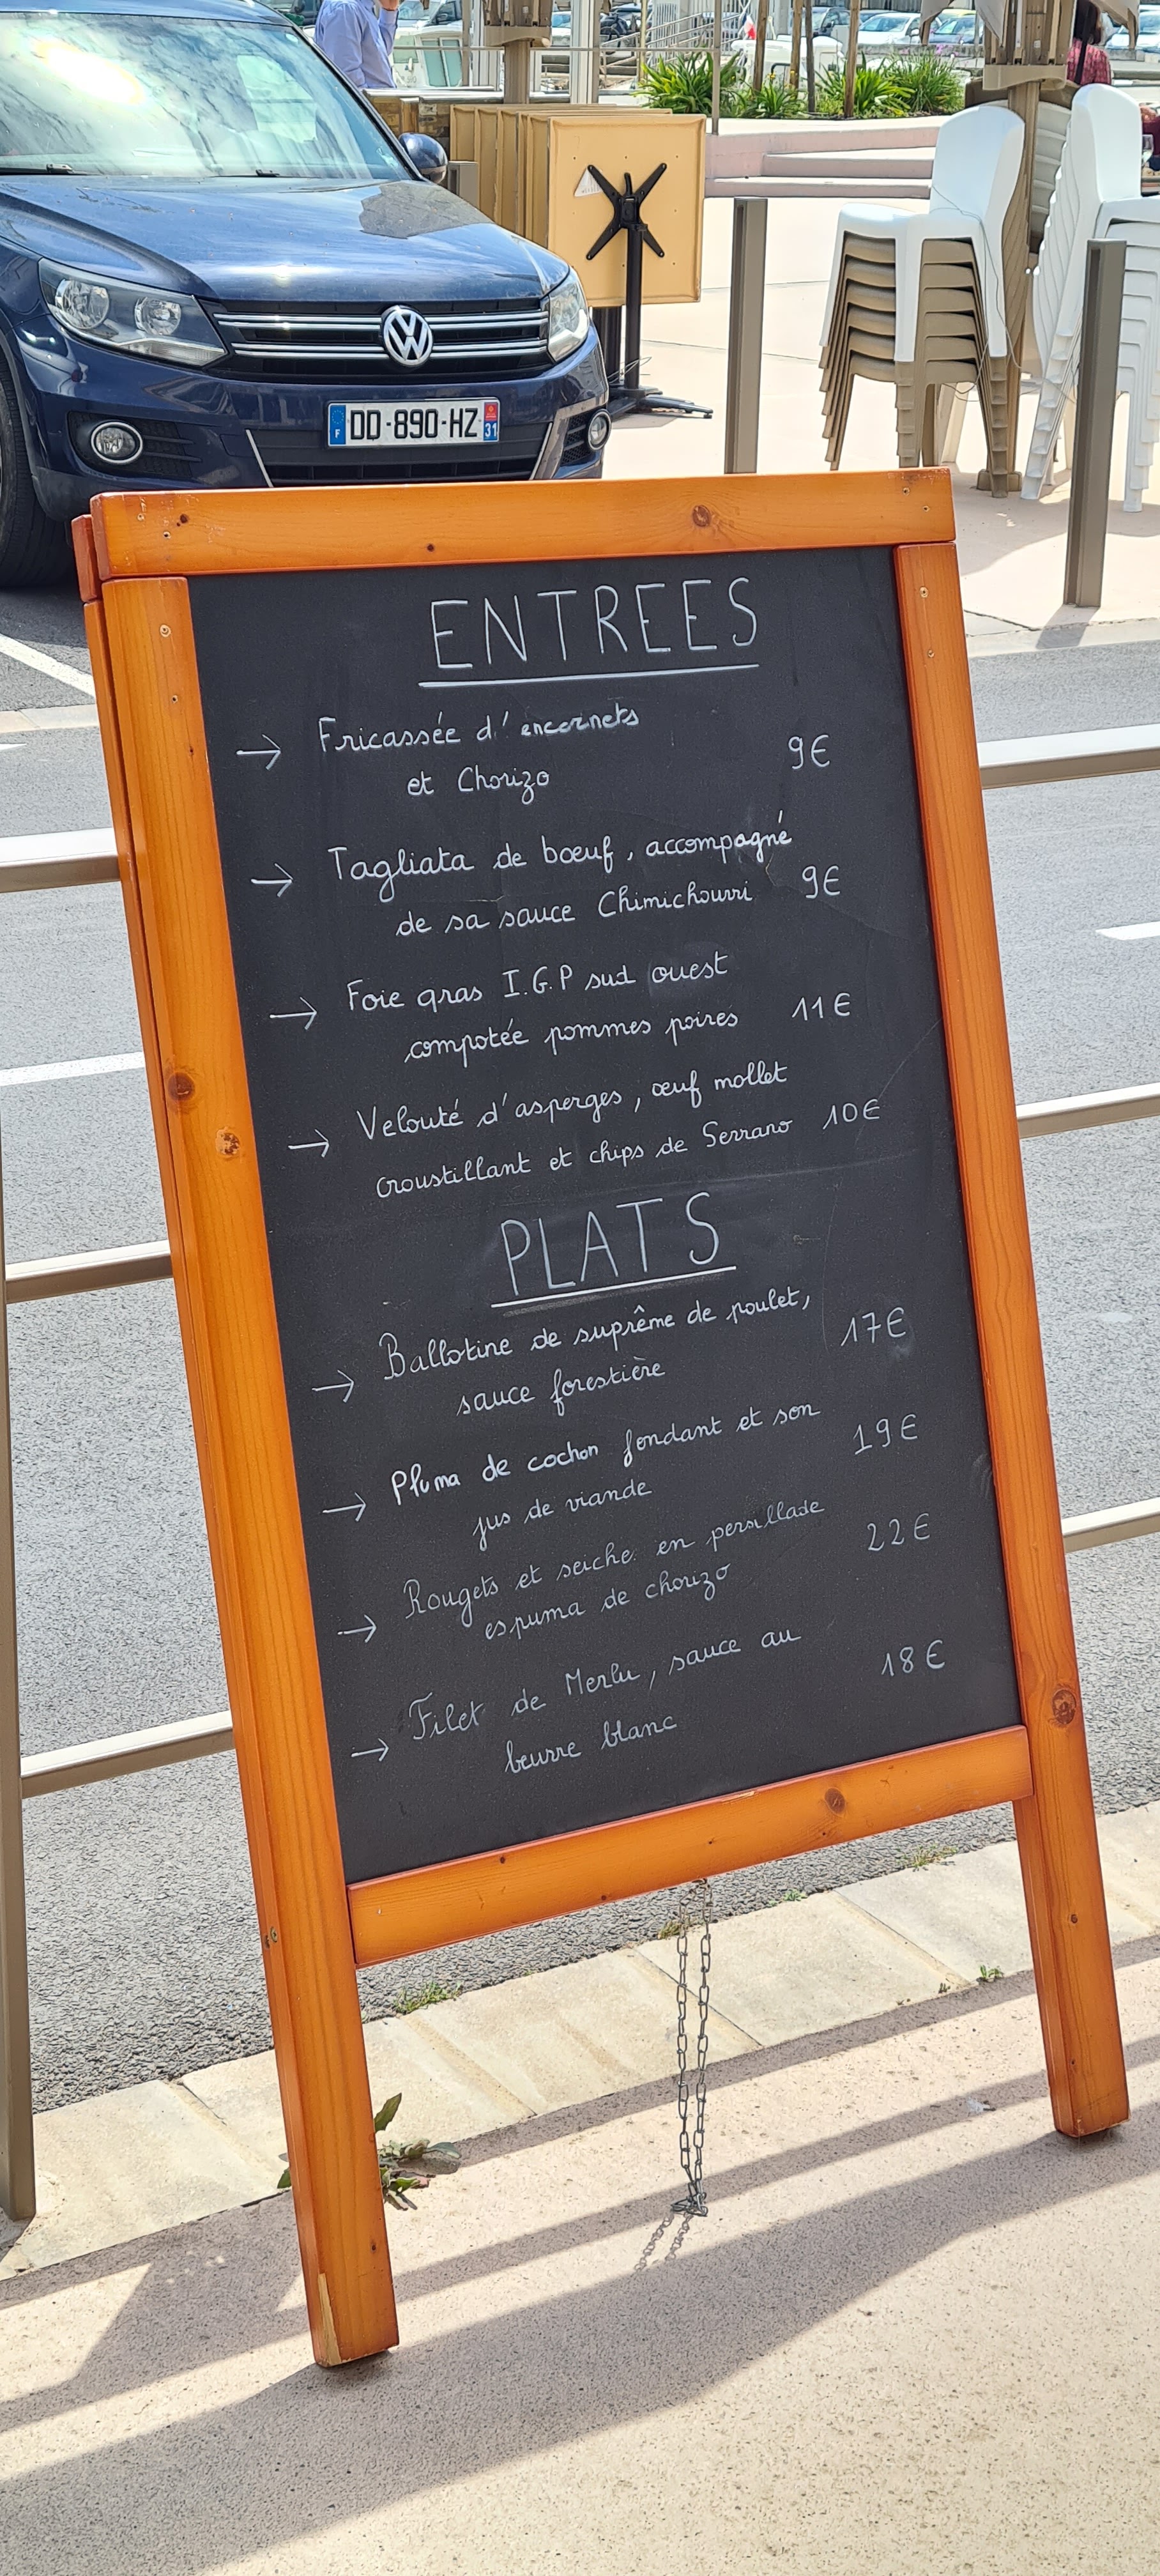 DD-890-HZ
F
31
ENTREES
→ Fricassée d'encornets
et Chorizo 9€
→ Tagliata de bœuf, accompagné
de sa sauce Chimichourri 9€
→ Foie gras I.G.P sud ouest
compotée pommes poires 11€
→ Velouté d'asperges, œuf mollet
croustillant et chips de Serrano 10€
PLATS
→ Ballotine de suprême de poulet,
sauce forestière 17€
→ Pluma de cochon fondant et son
jus de viande 19€
→ Rougets et seiche en persillade
espuma de chorizo 22€
→ Filet de Merlu, sauce au
beurre blanc 18€